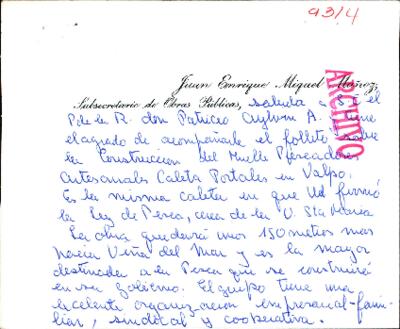 93/4
Juan Enrique Miguel Ibáñez,
Subsecretario de Obras Públicas, saluda a S.E. el
P. de la R. don Patricio Aylwin A. tiene
el agrado de acompañarle el folleto sobre
la Construccion del Muelle Pescadores
Artesanales Caleta Portales en Valpo.
Es la misma caleta en que Ud firmó
la Ley de Pesca, cerca de la U. Sta Maria
La obra quedará unos 150 metros mas
hacia Viña del Mar y es la mayor
destinada a la Pesca que se construirá
en su gobierno. El grupo tiene una
excelente organizacion empresarial-fami-
liar, sindical y cooperativa.
ARCHIVO